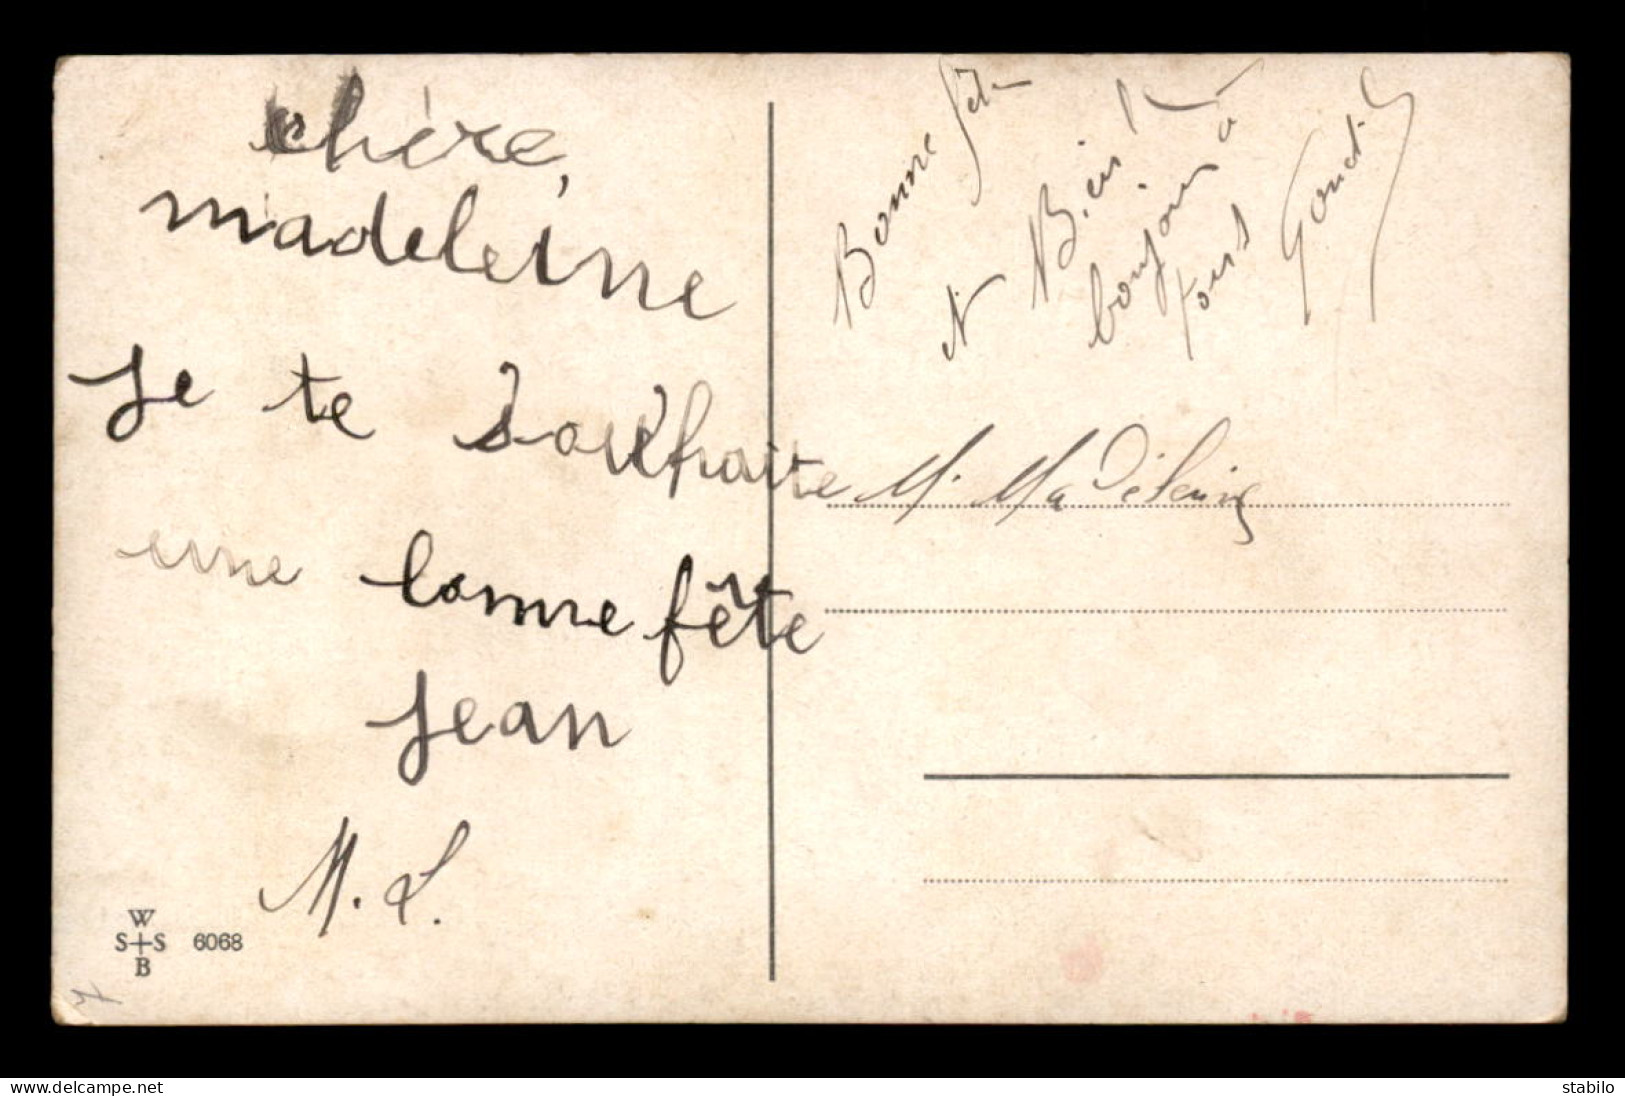 chère,
madeleine
Je te souhaite
une bonne fête
Jean
M. L.
W
S S 6068
B
Bonne fête
N
Bien
bonjour à
tous
M. Madeleine
7
www.delcampe.net
stabilo